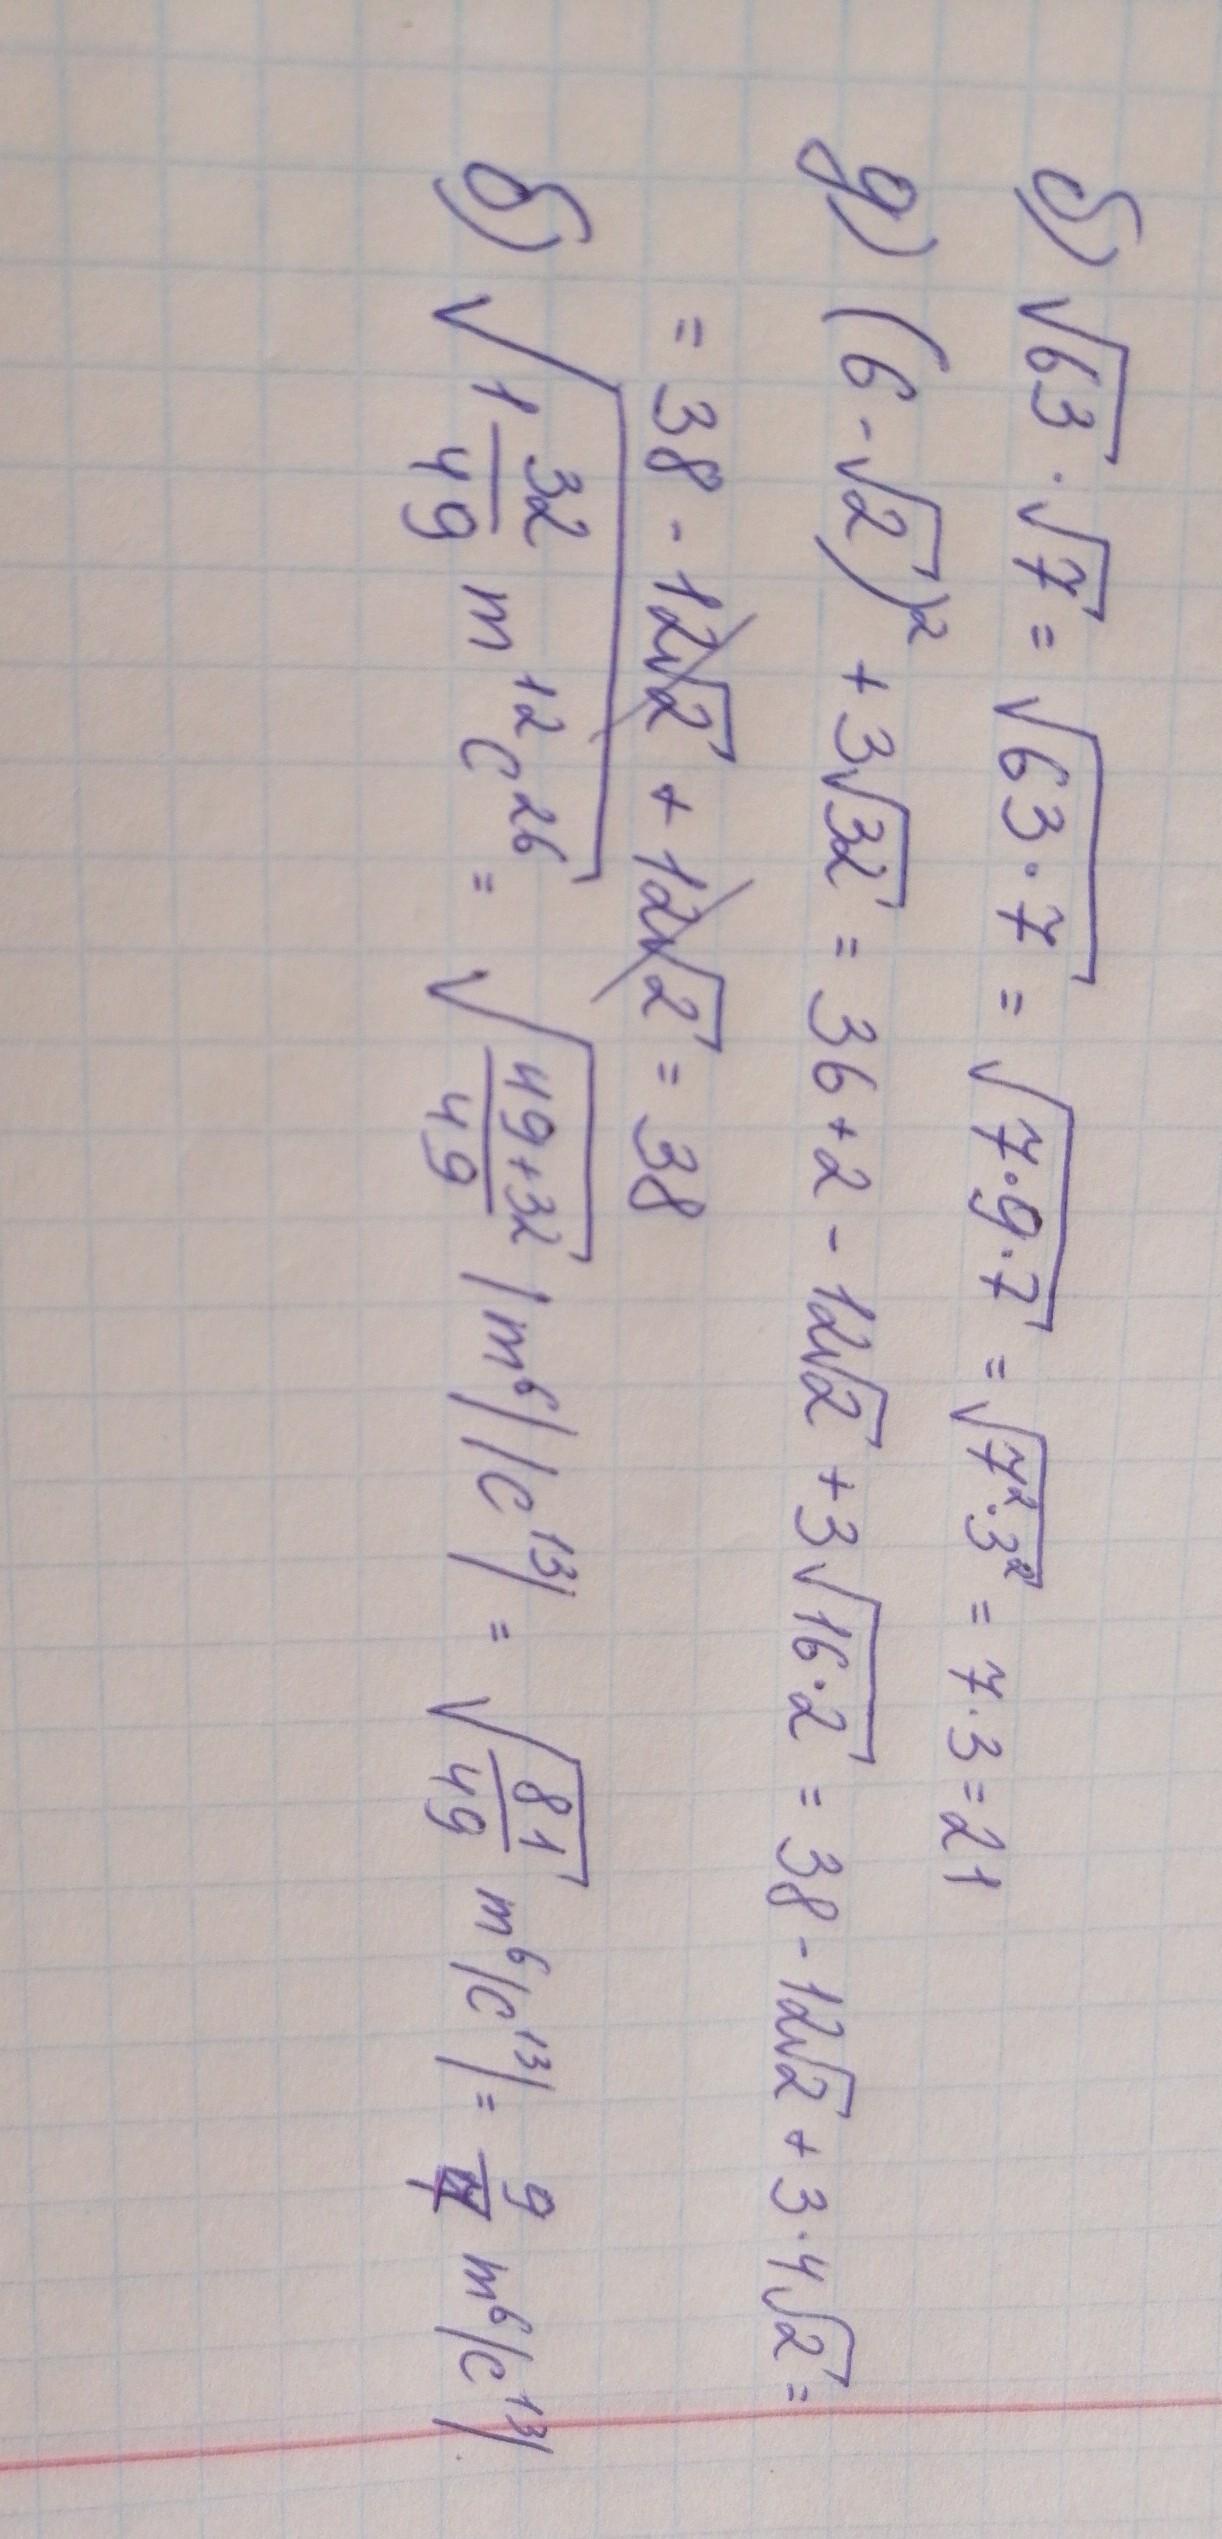 б) √63 · √7 = √63·7 = √7·9·7 = √7²·3² = 7·3 = 21
д) (6 - √2)² + 3√32 = 36 + 2 - 12√2 + 3√16·2 = 38 - 12√2 + 3·4√2 =
= 38 - 12√2 + 12√2 = 38
б) √1 32/49 m¹² c²⁶ = √49+32/49 |m⁶||c¹³| = √81/49 m⁶|c¹³| = 9/7 m⁶|c¹³|